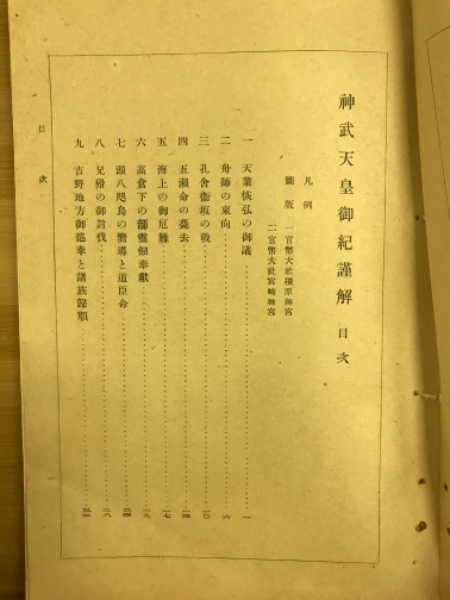 神武天皇御紀謹解 目次
凡例
圖版 一 官幣大社橿原神宮
二 官幣大社宮崎神宮
一 天業恢弘の御議……一
二 舟師の東向……六
三 孔舍衞坂の戰……一〇
四 五瀨命の薨去……一四
五 海上の御厄難……一七
六 高倉下の韴靈劒奉獻……一九
七 頭八咫烏の嚮導と道臣命……二四
八 兄猾の御討伐……二八
九 吉野地方御巡幸と諸族歸順……
目次